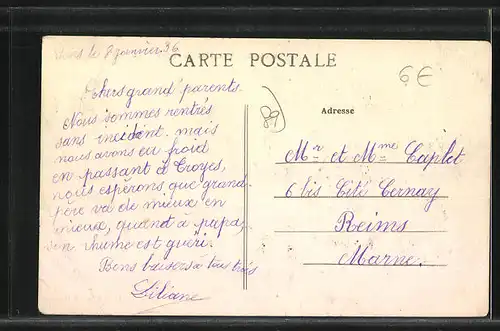 le 8 janvier 36
CARTE POSTALE
6€
Chers grand parents
Nous sommes rentrés
sans incident. mais
nous avons eu froid
en passant à Troyes,
nous espérons que grand-
père va de mieux en
mieux, quand à papa,
son rhume est guéri.
Bons baisers à tous trois
Liliane
89
Adresse
Mr et Mme Caplet
6 bis Cité Cernay
Reims
Marne.